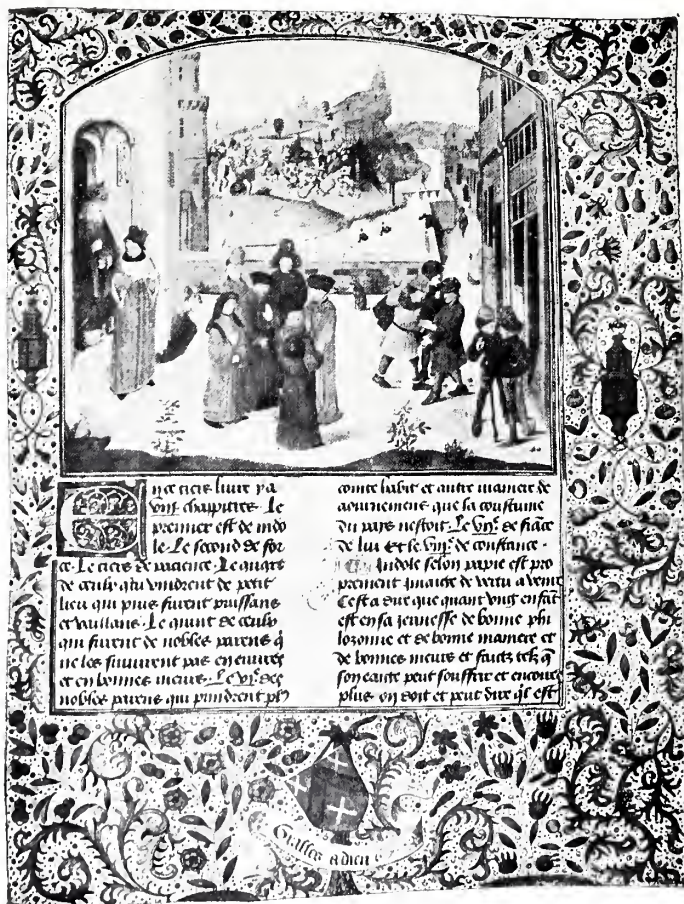 En ce tiers livre y a
viij chappitres. Le
premier est de indo
le Le second de for
ce. Le tiers de pacience. Le quart
de ceulx qui vindrent de petit
lieu qui puis furent puissans
et vaillans. Le quint de ceulx
qui furent de nobles parens q̃
ne les suivirent pas en euvres
et en bonnes meurs. Le vjᵉ. des
nobles parens qui prindrent plꝯ
cointe habit et autre maniere de
aournemens que la coustume
du pays nestoit. Le vijᵉ. de fiãce
de lui Et le viijᵉ. de constance.
Indole selon papie est pro
prement jmaige de vertu a venir
Cest a dire que quant vng enfãt
est en sa jeunesse de bonne phi
lozomie et de bonne maniere et
de bonnes meurs et faitz telz q̃
son eaige peut souffrir et encore
plus on doit et peut dire q̃l est
a dieu